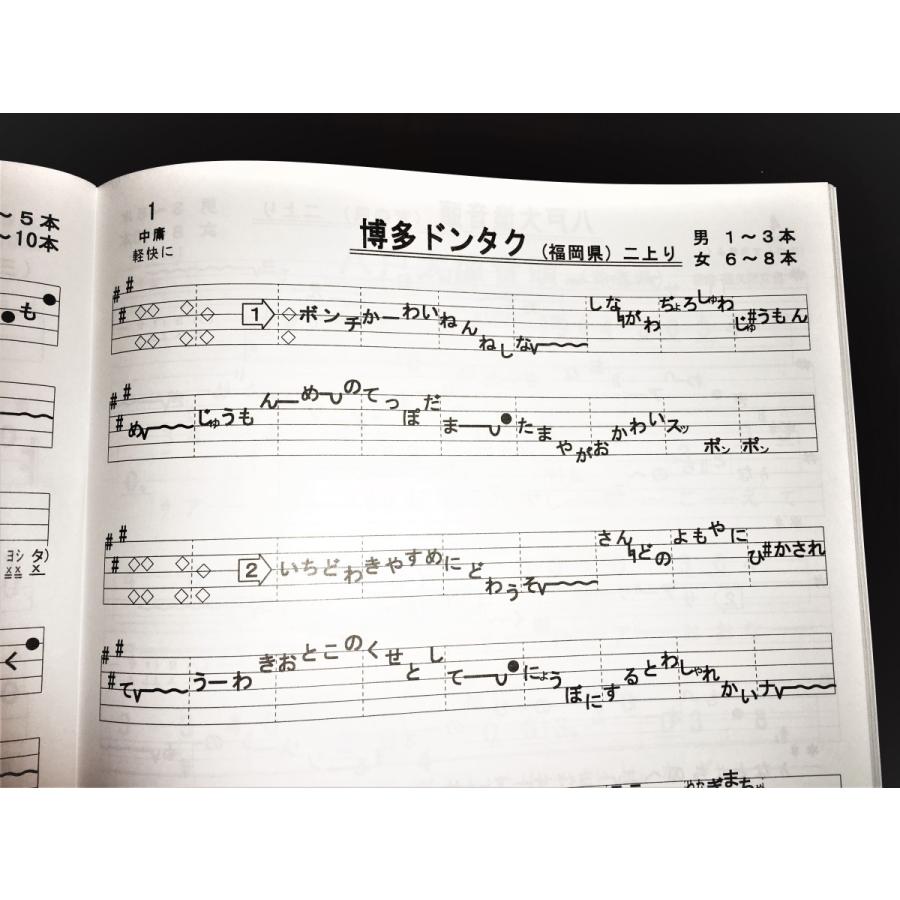 ～５本
～10本
も
ヨシ タ)
××× 
く
1
中庸
軽快に
博多ドンタク（福岡県）二上り
男 １～３本
女 ６～８本
1 ボンチかーわいねんねしな しながわ ぢょろしゅわ じゅうもん
め じゅうもんーめーのてっぽだまー たまやがおかわいスッポンポン
2 いちどわきやすめにどわうそ さんどのよもやにひかされ
て うーわきおとこのくせとして にょうぼにするとわしゃれかいナ